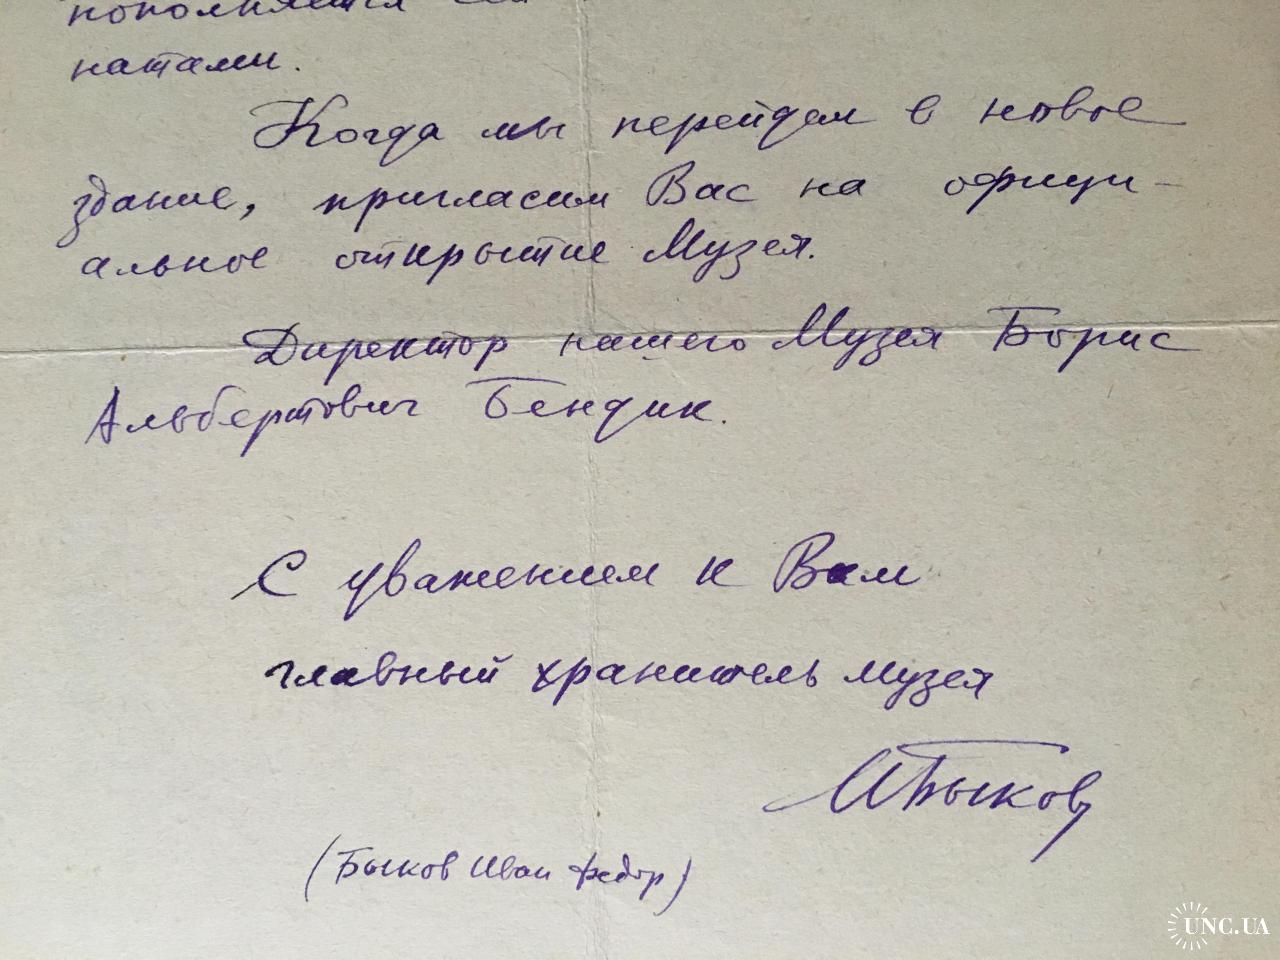 пополняется
натами.
Когда мы перейдем в новое
здание, пригласим Вас на офици-
альное открытие Музея.
Директор нашего Музея Борис
Альбертович Бендик.
С уважением к Вам
главный хранитель музея
ИБыков
(Быков Иван Федор)
UNC.UA